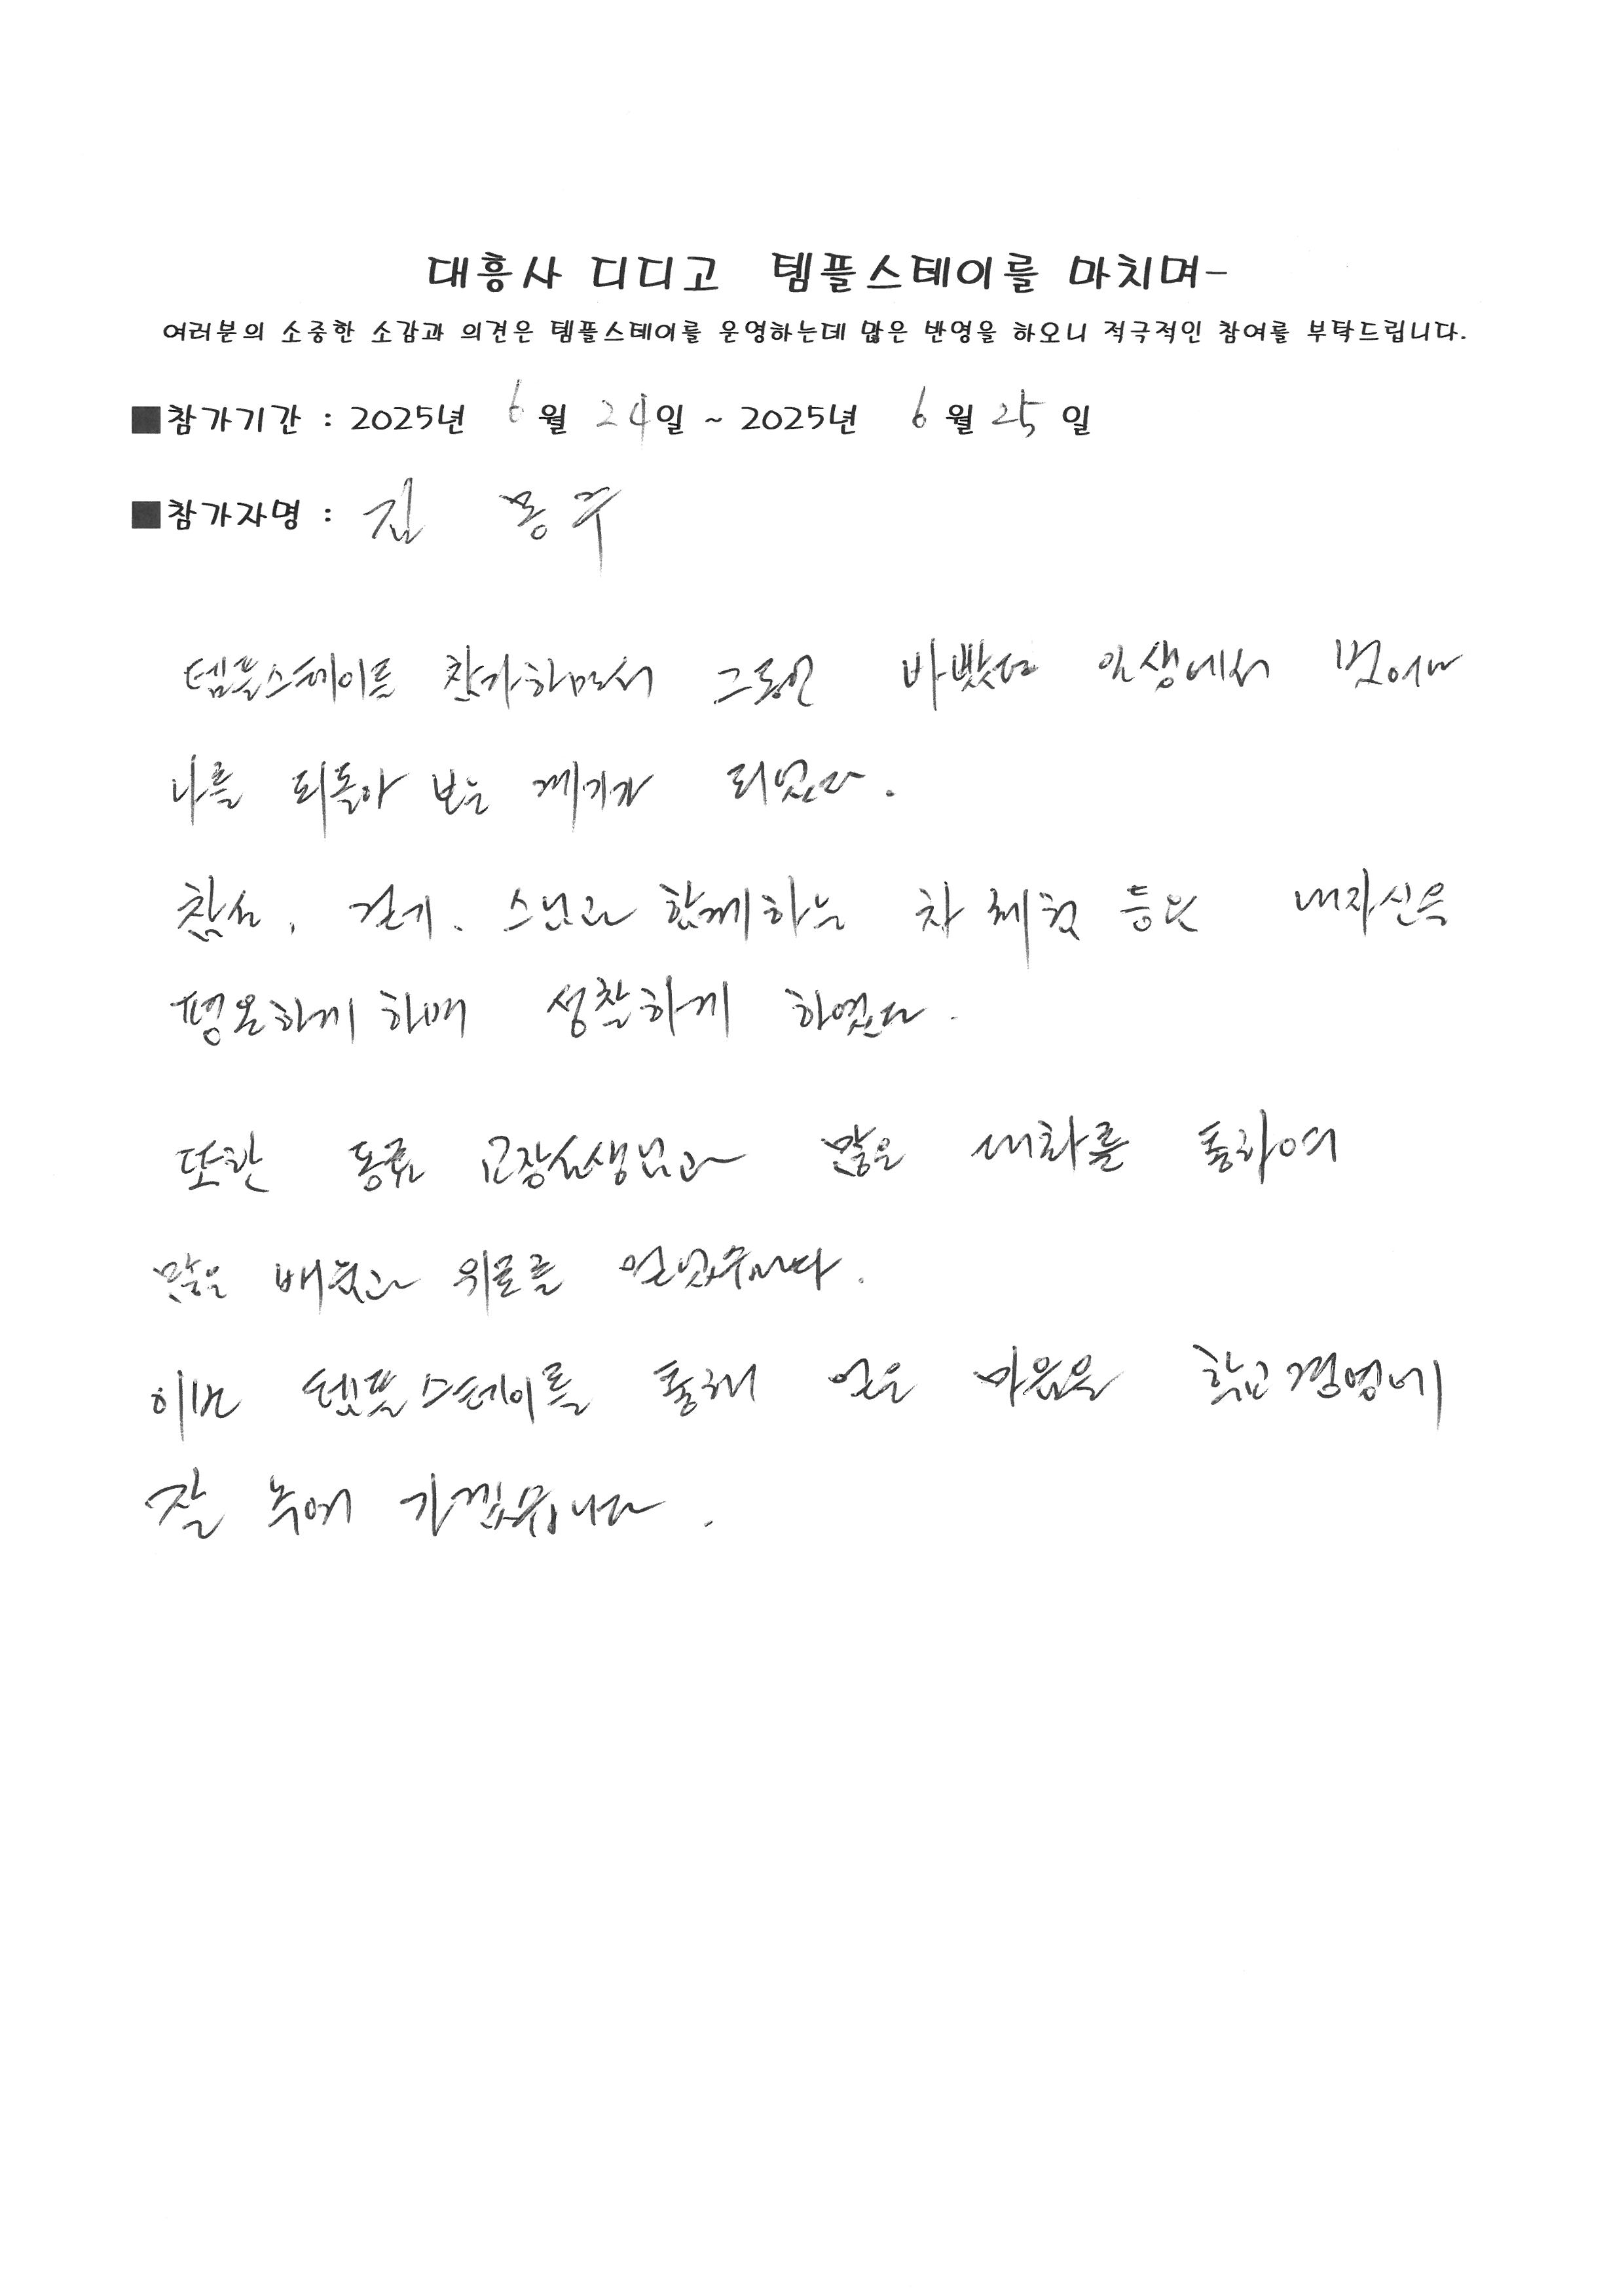 대흥사 디디고 템플스테이를 마치며-
여러분의 소중한 소감과 의견은 템플스테이를 운영하는데 많은 반영을 하오니 적극적인 참여를 부탁드립니다.
■참가기간 : 2025년 6월 24일 ~ 2025년 6월 25일
■참가자명 : 김
템플스테이를 참가하면서 그동안 바빴던 인생에서 벗어나
나를 되돌아 보는 계기가 되었다.
참선, 걷기, 스님과 함께하는 차 체험 등은 내자신을
평온하게 하며 성찰하게 하였다.
또한 동료 교장선생님과 많은 대화를 통하여
많은 배움과 위로를 얻었습니다.
이번 템플스테이를 통해 얻은 마음을 학교경영에
잘 녹여